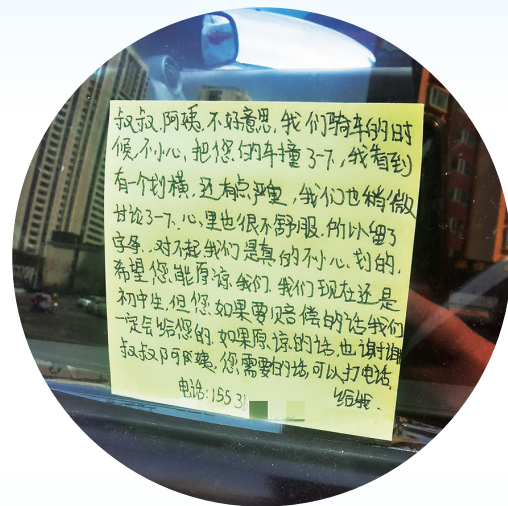 叔叔,阿姨,不好意思,我们骑车的时
候,不小心,把您的车撞了一下,我看到
有一个划横,还有点严重,我们也稍微
讨论了一下,心里也很不舒服,所以留了
字条,对不起我们是真的不小心划的,
希望您能原谅我们,我们现在还是
初中生,但您如果要赔偿的话我们
一定会给您的,如果原谅的话,也谢谢
叔叔阿阿姨,您需要的话,可以打电话
电话:15531 给我.